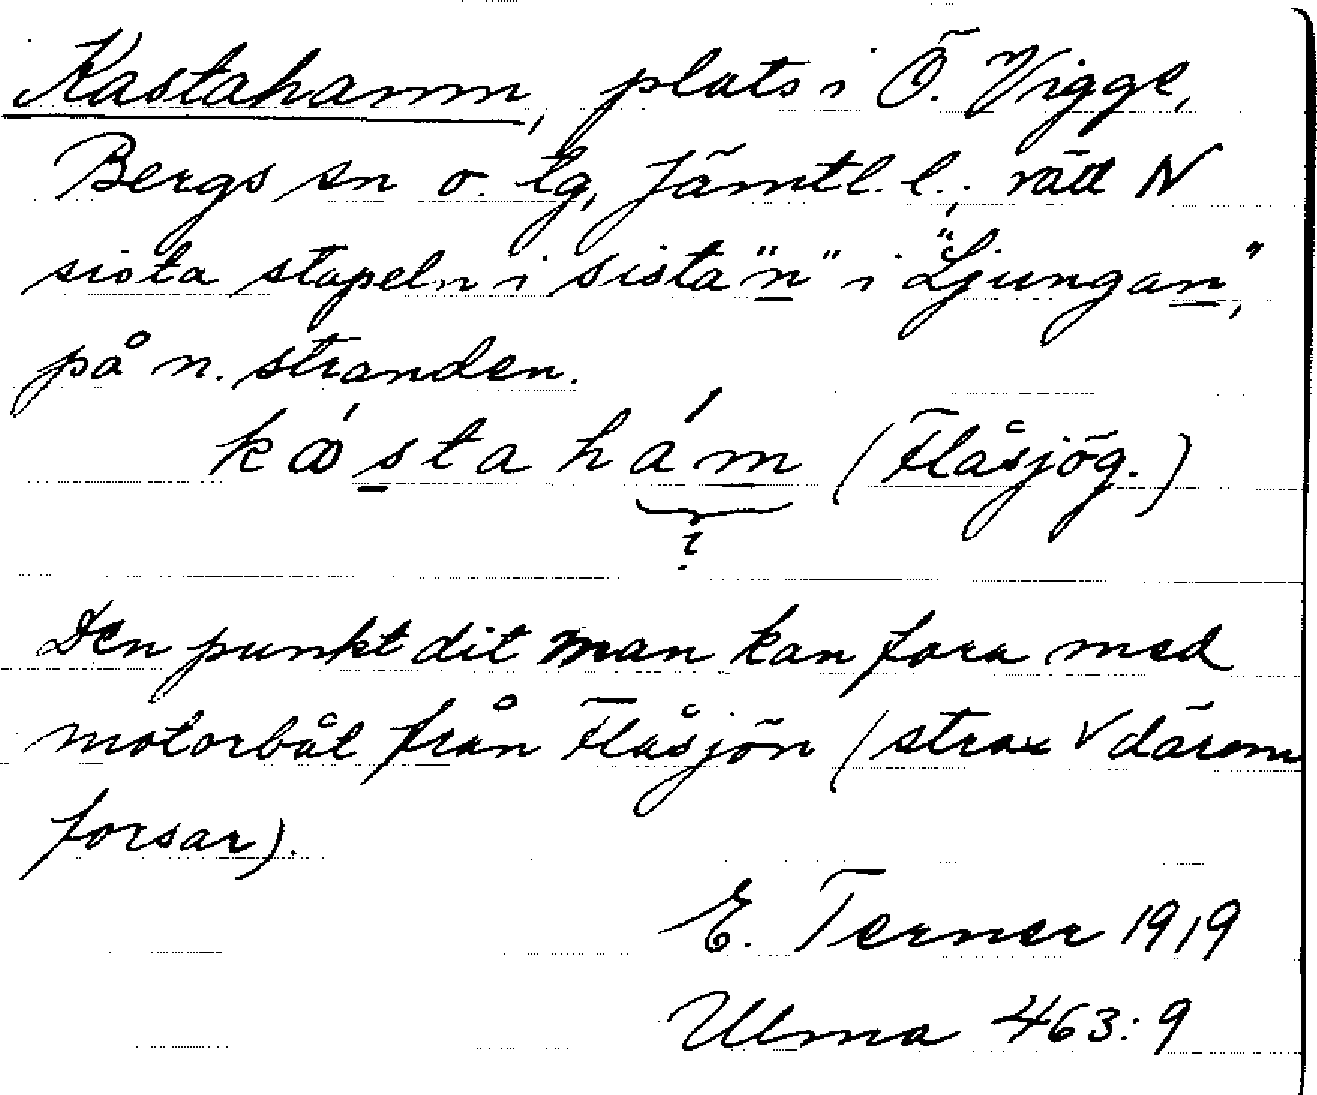 Kastahamn, plats i Ö. Vigge,
Bergs sn o. tg, Jämtl. l.; rätt N
sista stapeln i sista "n" i "Ljungan",
på n. stranden.
kástahám (Flåsjög.)
?
Den punkt dit man kan fara med
motorbåt från Flåsjön (strax V därom
forsar).
E. Terner 1919
Ulma 463:9